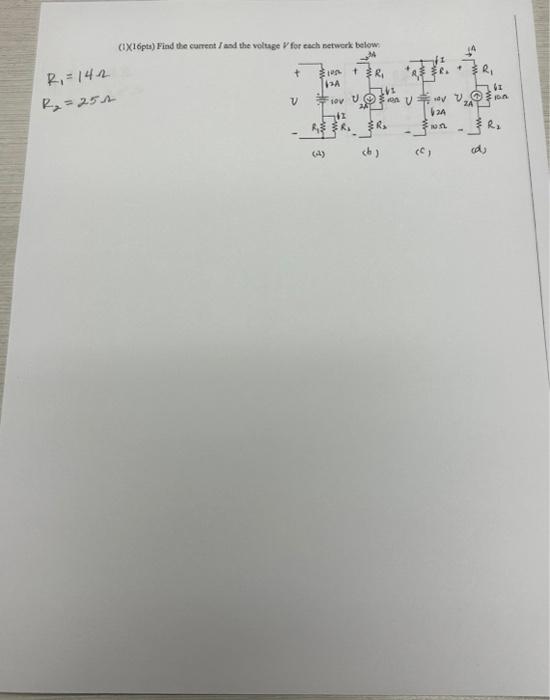 (1)(16pts) Find the current I and the voltage V for each network below:
R₁ = 14Ω
R₂ = 25Ω
+ 10Ω ↓2A V 10V ↓I R₁ R₂ - (a)
3A + R₁ V 2A ↓I 10Ω R₂ - (b)
+ R₁ ↓I R₂ V 10V ↓2A 10Ω - (c)
1A + R₁ V 2A ↓I 10Ω R₂ - (d)